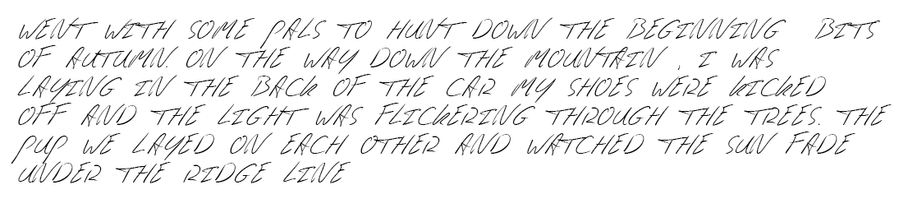 WENT WITH SOME PALS TO HUNT DOWN THE BEGINNING BITS
OF AUTUMN. ON THE WAY DOWN THE MOUNTAIN , I WAS
LAYING IN THE BACK OF THE CAR MY SHOES WERE KICKED
OFF AND THE LIGHT WAS FLICKERING THROUGH THE TREES. THE
PUP WE LAYED ON EACH OTHER AND WATCHED THE SUN FADE
UNDER THE RIDGE LINE